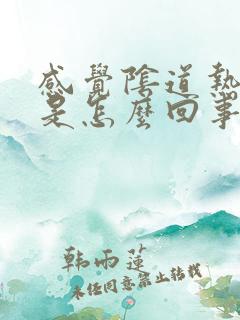 感覺陰道熱
是怎麼回事
韩雨莲
未经同意禁止转载